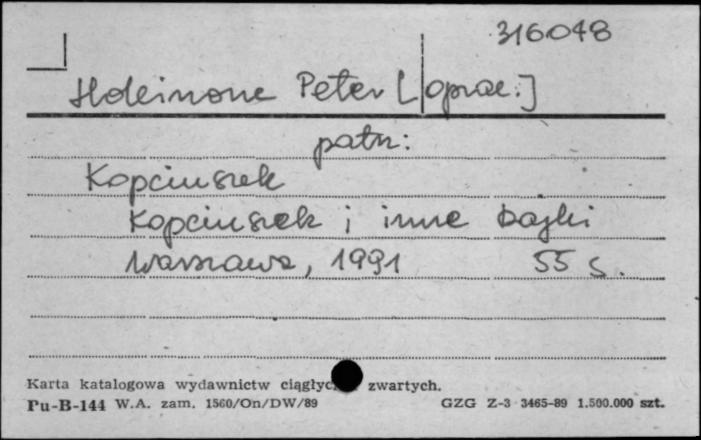 316048
Holeinone Peter [oprac.]
patrz:
Kopciuszek
Kopciuszek i inne bajki
Warszawa, 1991 55 s.
Karta katalogowa wydawnictw ciągłyc zwartych.
Pu-B-144 W.A. zam. 1560/On/DW/89 GZG Z-3 3465-89 1.500.000 szt.